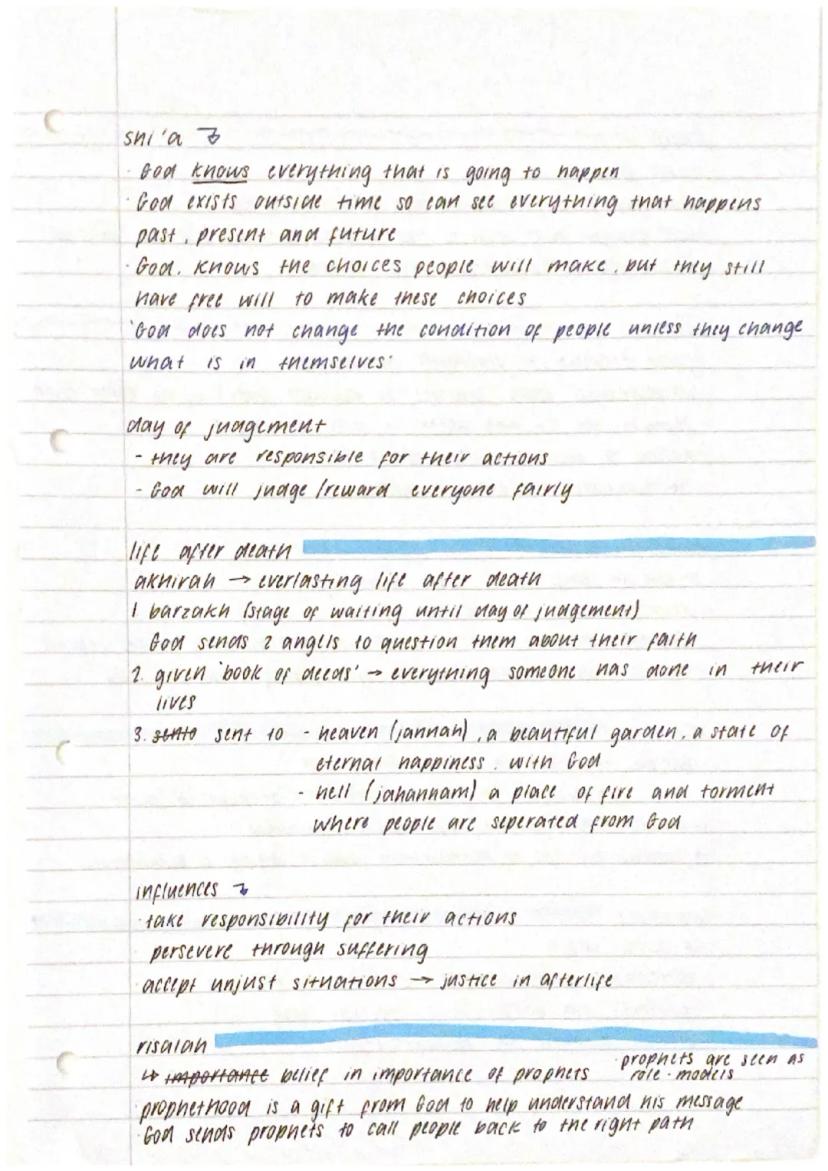 shi'a ↴
· God knows everything that is going to happen
· God exists outside time so can see everything that happens
past, present and future
· God. knows the choices people will make, but they still
have free will to make these choices
'God does not change the condition of people unless they change
what is in themselves'
day of judgement
- they are responsible for their actions
- God will judge/reward everyone fairly
life after death
akhirah → everlasting life after death
1 barzakh (stage of waiting until day of judgement)
God sends 2 angels to question them about their faith
2. given 'book of deeds' → everything someone has done in their
lives
3. sent to - heaven (jannah), a beautiful garden, a state of
eternal happiness. with God
- hell (jahannam) a place of fire and torment
where people are seperated from God
influences ↴
· take responsibility for their actions
· persevere through suffering
· accept unjust situations → justice in afterlife
risalah
↳ importance belief in importance of prophets
· prophets are seen as
role-models
· prophethood is a gift from God to help understand his message
· God sends prophets to call people back to the right path